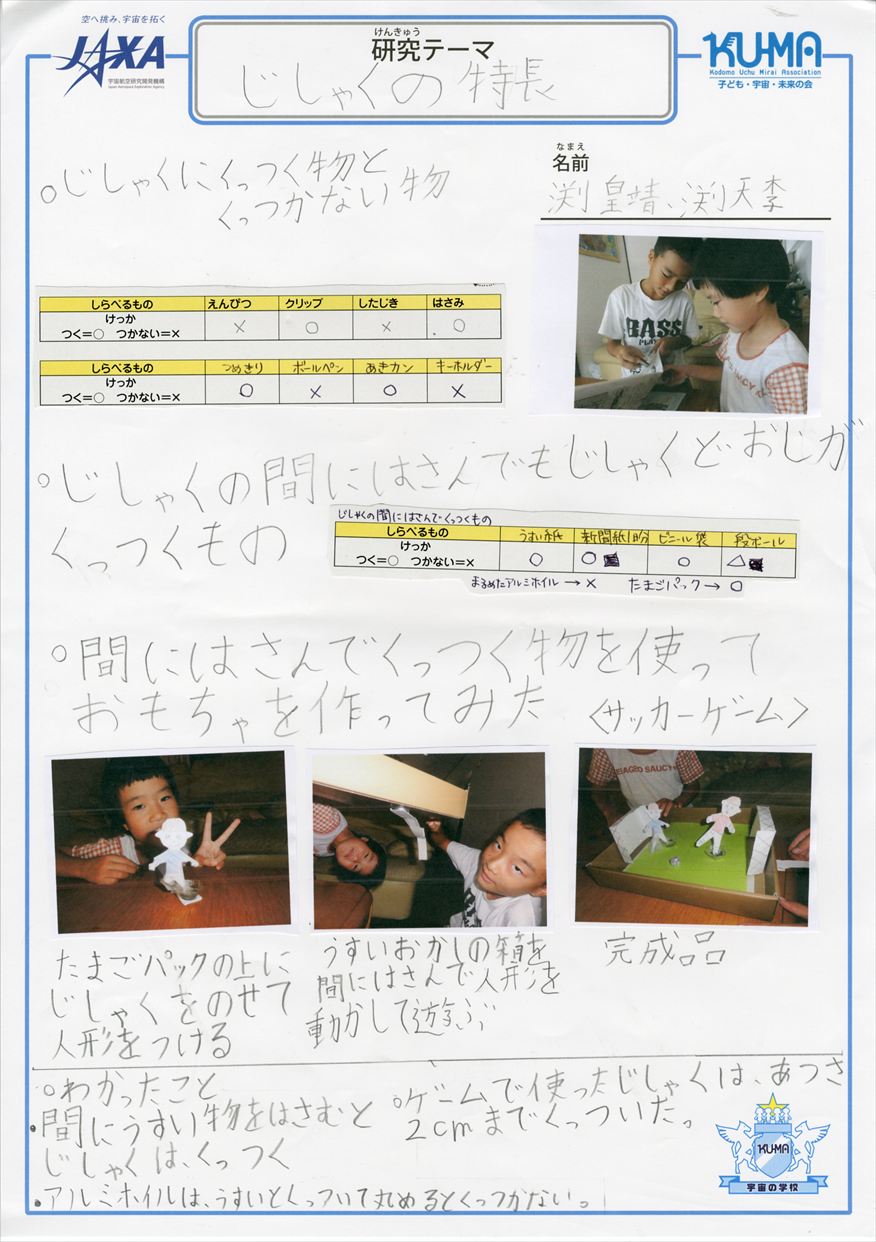 空へ挑み、宇宙を拓く
JAXA
宇宙航空研究開発機構
Japan Aerospace Exploration Agency
けんきゅう
研究テーマ
じしゃくの特長
KU-MA
Kodomo Uchu Mirai Association
子ども・宇宙・未来の会
なまえ
名前
渕皇靖、渕天李
○じしゃくにくっつく物と
くっつかない物
しらべるもの えんぴつ クリップ したじき はさみ
けっか
つく=○ つかない=× × ○ × ○
しらべるもの つめきり ボールペン あきカン キーホルダー
けっか
つく=○ つかない=× ○ × ○ ×
BASS
○じしゃくの間にはさんでもじしゃくどおしが
くっつくもの
じしゃくの間にはさんでくっつくもの
しらべるもの うすい紙 新聞紙1部 ビニール袋 段ボール
けっか
つく=○ つかない=× ○ ○ ○ △
まるめたアルミホイル→× たまごパック→○
○間にはさんでくっつく物を使って
おもちゃを作ってみた 〈サッカーゲーム〉
たまごパックの上に
じしゃくをのせて
人形をつける
うすいおかしの箱を
間にはさんで人形を
動かして遊ぶ
完成品
○わかったこと
・間にうすい物をはさむと
じしゃくは、くっつく
・アルミホイルは、うすいとくっついて丸めるとくっつかない。
○ゲームで使ったじしゃくは、あつさ
2cmまでくっついた。
KU-MA
宇宙の学校